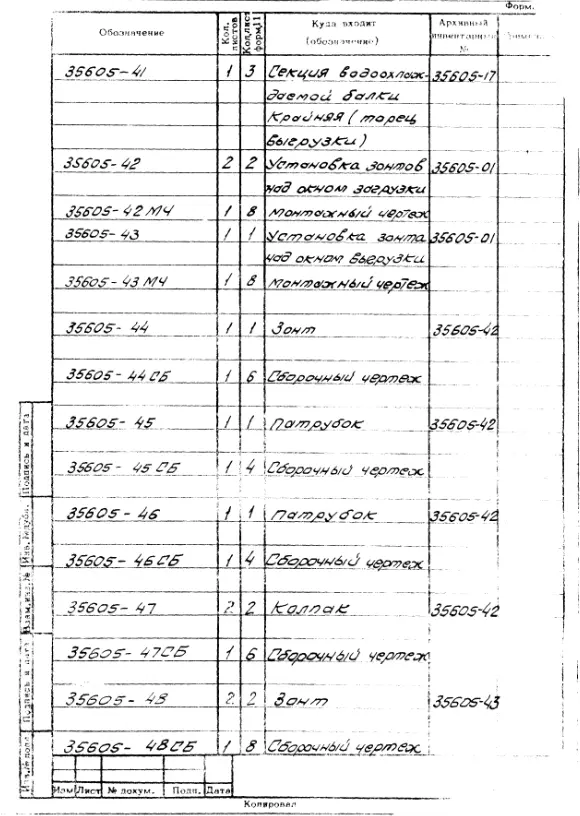 Форм.
Обозначение Кол. листов Кол. лист форм. 11 Куда входит (обозначение) Архивный инвентарный №
35605-41 1 3 Секция водоохлаж- 35605-17
даемой балки
крайняя (торец
выгрузки)
35605-42 2 2 Установка зонтов 35605-01
над окном загрузки
35605-42 МЧ 1 8 монтажный чертеж
35605-43 1 1 Установка зонта 35605-01
над окном выгрузки
35605-43 МЧ 1 8 монтажный чертеж
35605-44 1 1 Зонт 35605-42
35605-44 СБ 1 6 Сборочный чертеж
35605-45 1 1 Патрубок 35605-42
35605-45 СБ 1 4 Сборочный чертеж
35605-46 1 1 Патрубок 35605-42
35605-46 СБ 1 4 Сборочный чертеж
35605-47 2 2 Колпак 35605-42
35605-47 СБ 1 6 Сборочный чертеж
35605-48 2 2 Зонт 35605-43
35605-48 СБ 1 8 Сборочный чертеж
Подпись и дата
Инв. № дубл.
Взам. инв. №
Подпись и дата
Инв. № подл.
Изм Лист № докум. Подп. Дата
Копировал